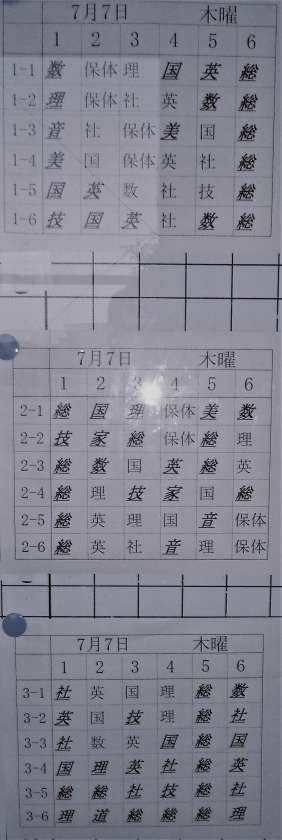 7月7日 木曜
1 2 3 4 5 6
1-1 数 保体 理 国 英 総
1-2 理 保体 社 英 数 総
1-3 音 社 保体 美 国 総
1-4 美 国 保体 英 社 総
1-5 国 英 数 社 技 総
1-6 技 国 英 社 数 総
7月7日 木曜
1 2 3 4 5 6
2-1 総 国 理 保体 美 数
2-2 技 家 総 保体 総 理
2-3 総 数 国 英 総 英
2-4 総 理 技 家 国 総
2-5 総 英 理 国 音 保体
2-6 総 英 社 音 理 保体
7月7日 木曜
1 2 3 4 5 6
3-1 社 英 国 理 総 数
3-2 英 国 技 理 総 社
3-3 社 数 英 国 総 国
3-4 国 理 英 社 総 英
3-5 総 総 社 技 総 社
3-6 理 道 総 総 総 理